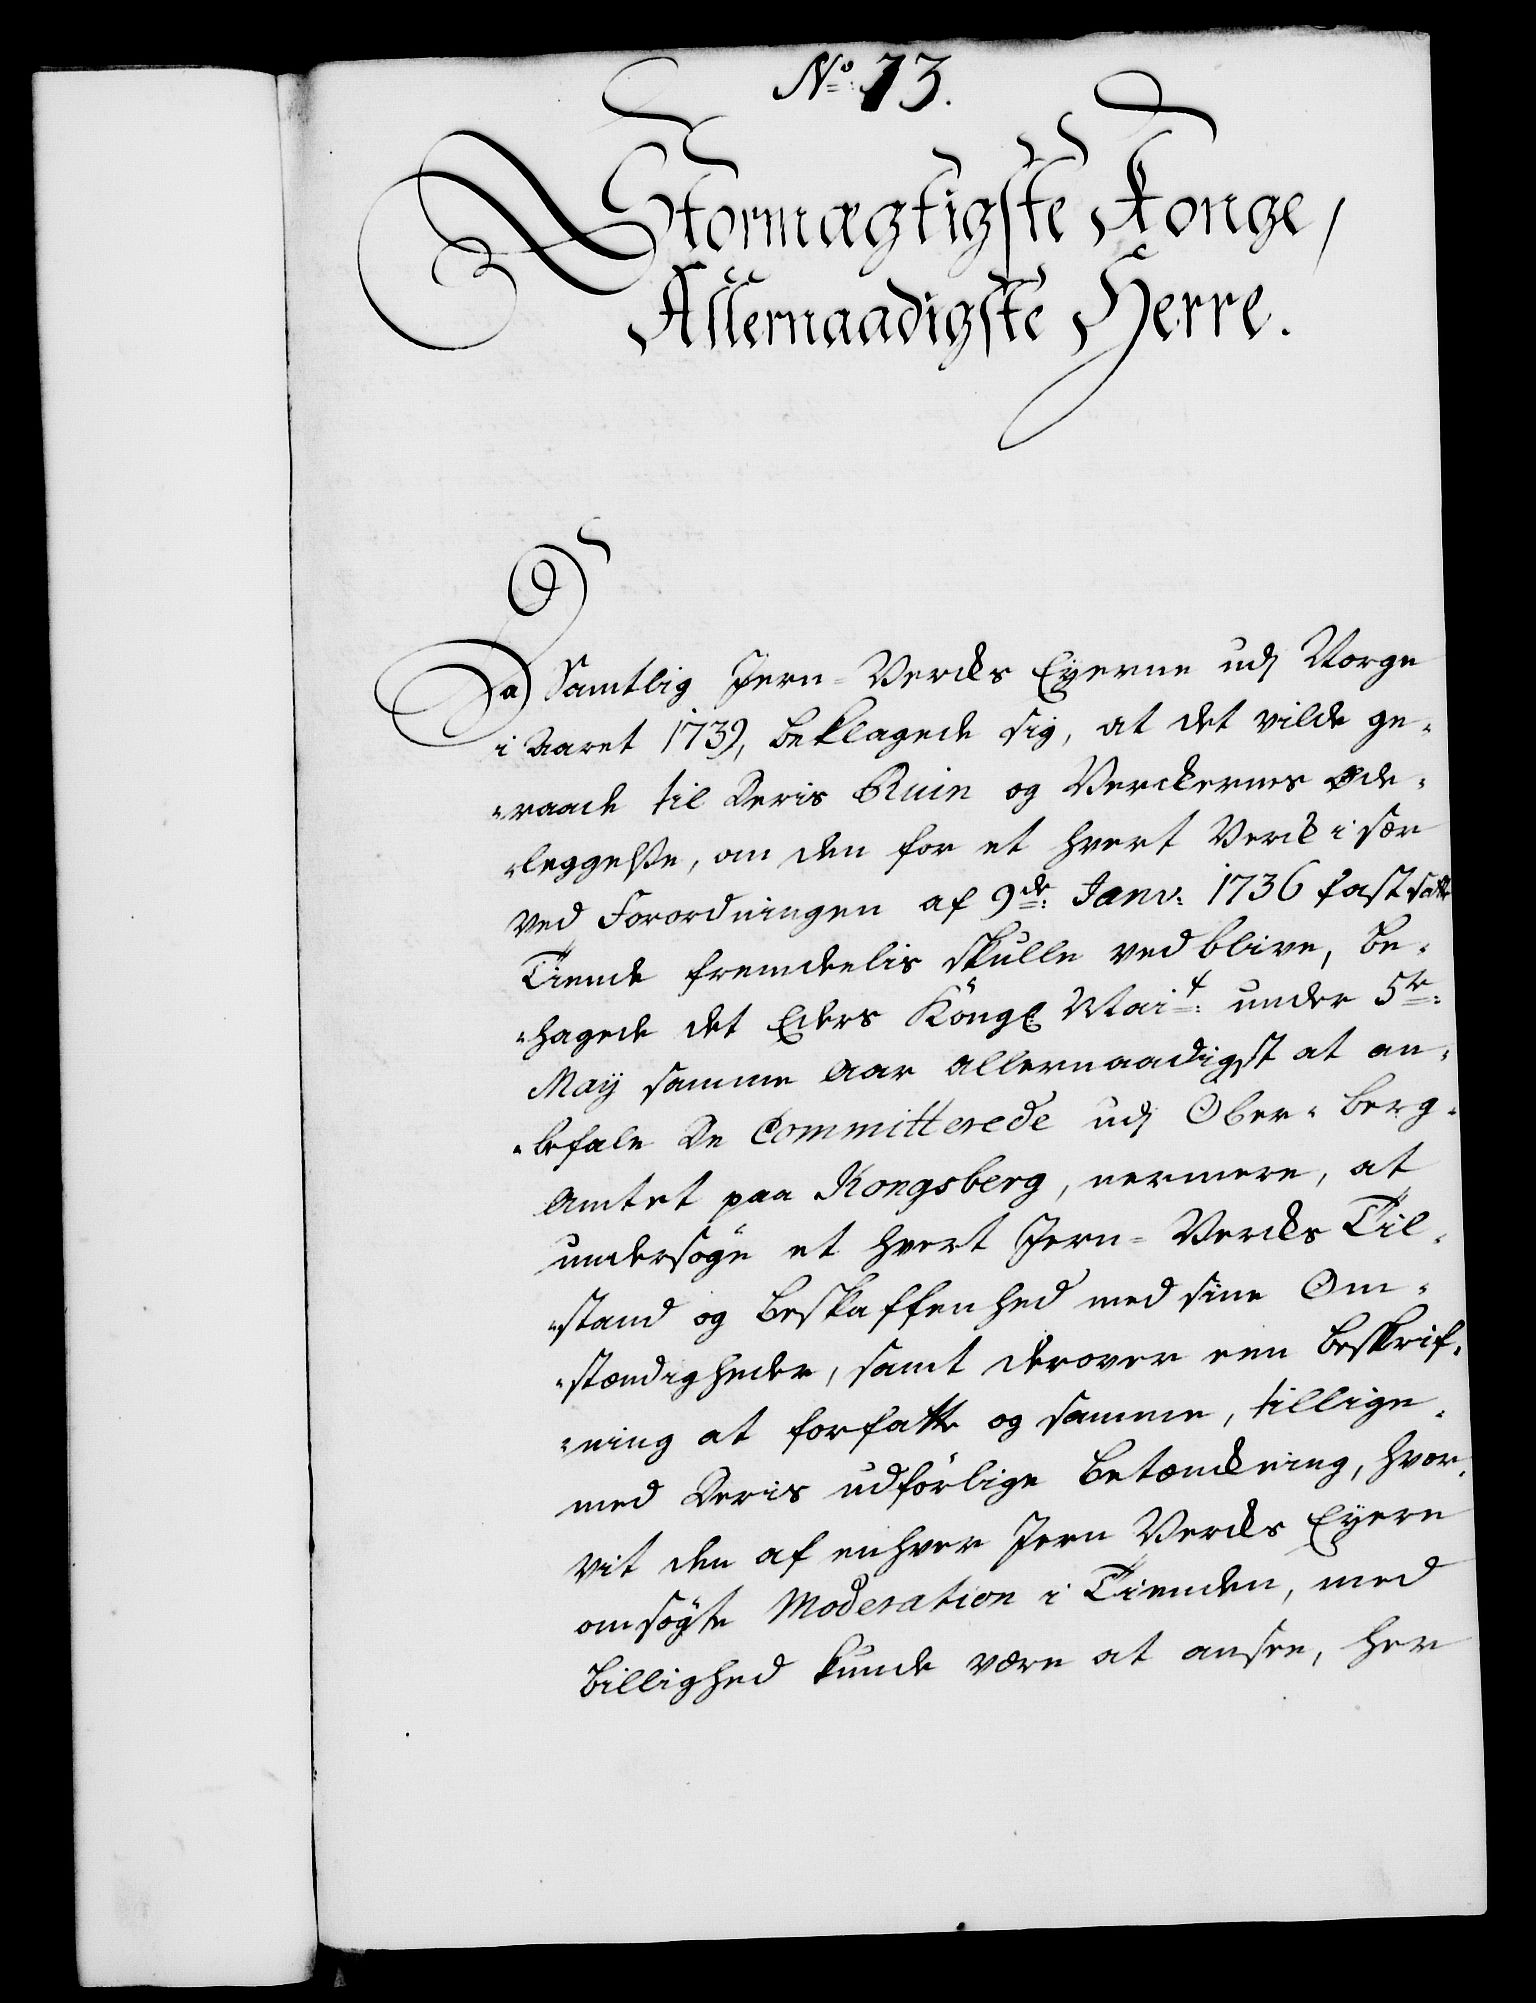 No: 73.
Stormægtigste Konge,
Allernaadigste Herre.
Da Samtlig Jern-Vercks Eyerne udj Norge
i Aaret 1739, beklagede sig, at det vilde ge-
raade til Deris Ruin og Verckernes Øde-
leggelsse, om den for et hvert Verck i sær
ved Forordningen af 9de: Janv: 1736 fastsatte
Tiende fremdeelis skulle vedblive, be-
hagede det Eders Kongl Mait: under 5te:
May samme Aar allernaadigst at an-
befale De Committerede udj Ober-Berg-
Amtet paa Kongsberg, nermere, at
undersøge et hvert Jern-Vercks Til-
stand og Beskaffenhed med sine Om-
stændigheder, samt derover een Beskrif-
ning at forfatte og samme, tillige
med Deris udførlige Betænckning, hvor-
vit den af enhver Jern Vercks Eyere
omsøgte Moderation i Tienden, med
Billighed kunde være at ansee, her